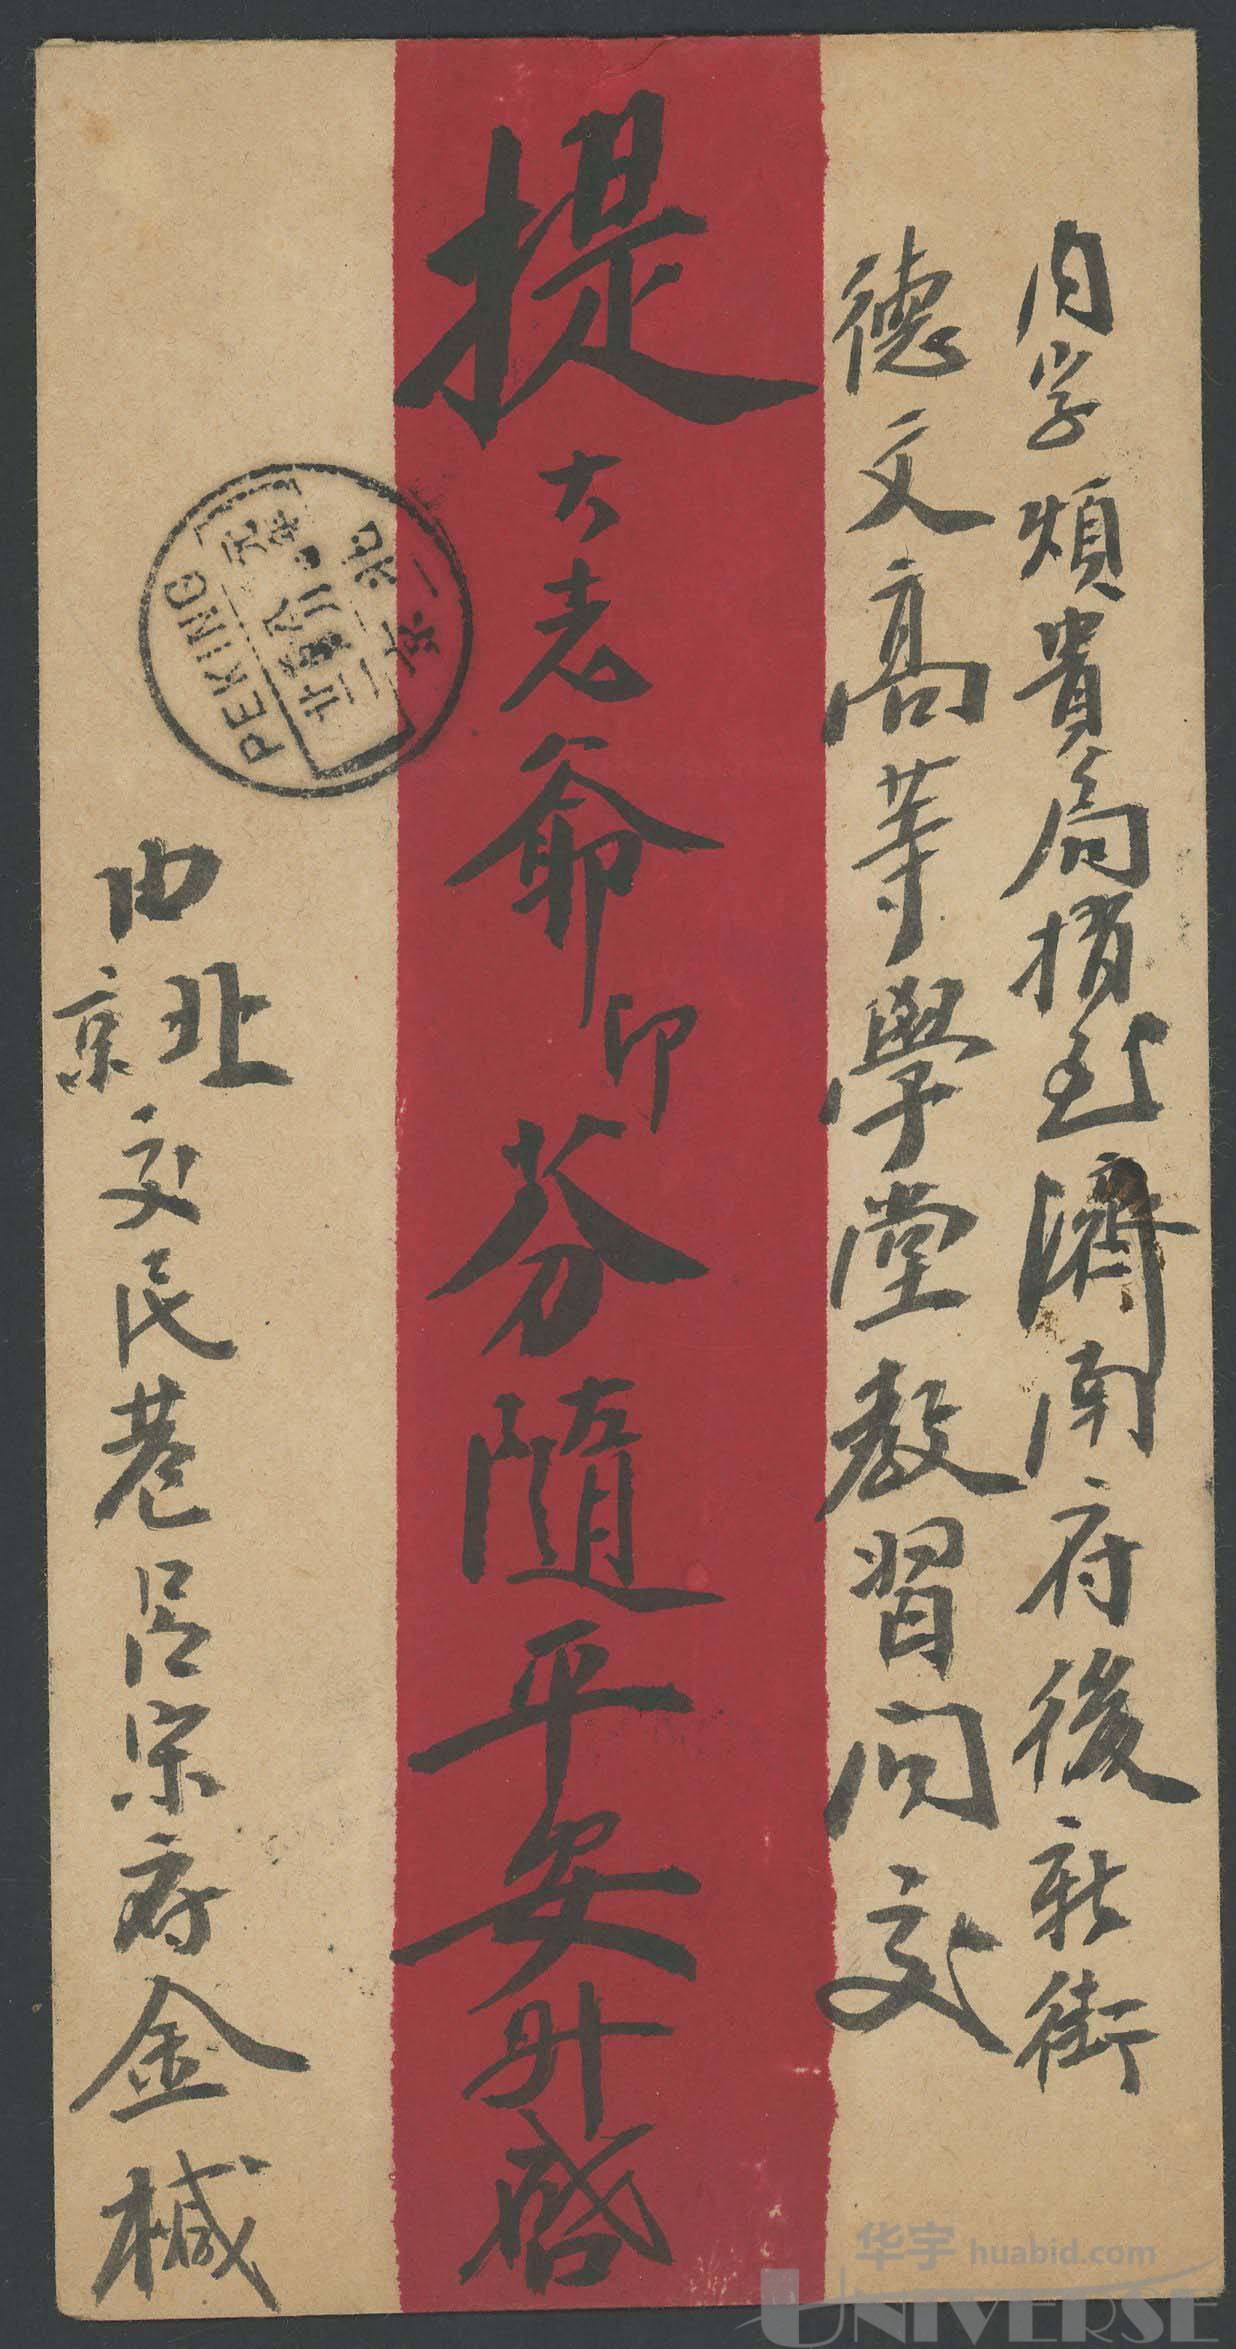 内字煩貴局捎至濟南府後新街
德文高等學堂教習同交
提大老爺印芬隨平安升啓
由北京交民巷呂宋府金椷
PEKING
北京
华宇 huabid.com
UNIVERSE